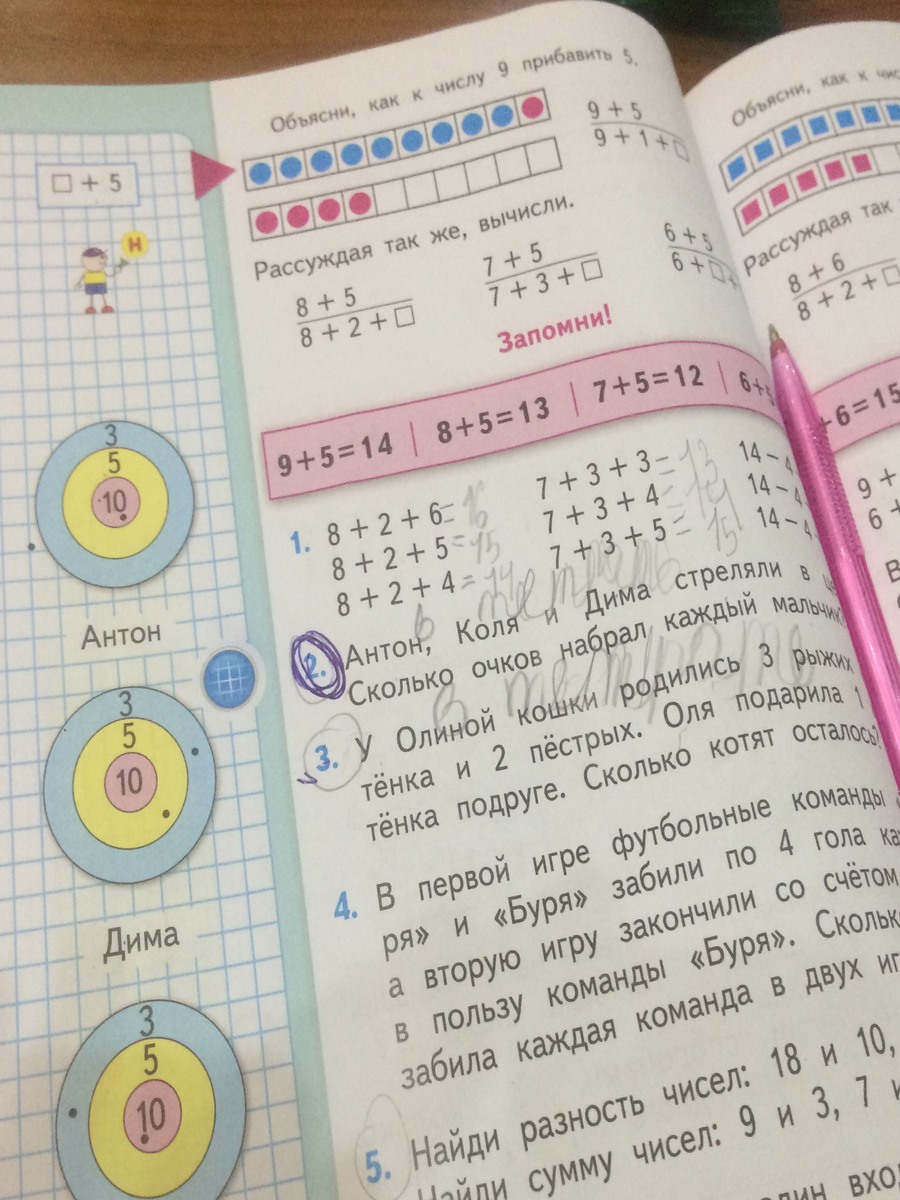 Объясни, как к числу 9 прибавить 5.
9 + 5
9 + 1 + □
□ + 5
Н
Рассуждая так же, вычисли.
8 + 5
8 + 2 + □
7 + 5
7 + 3 + □
6 + 5
6 + □
Запомни!
9+5=14 | 8+5=13 | 7+5=12 | 6+5
1. 8 + 2 + 6=16 7 + 3 + 3=13 14 - 4
8 + 2 + 5=15 7 + 3 + 4=14 14 - 4
8 + 2 + 4=14 7 + 3 + 5=15 14 - 4
в тетрадь
2. Антон, Коля и Дима стреляли в
Сколько очков набрал каждый мальчик
в
3. У Олиной кошки родились 3 рыжих
тёнка и 2 пёстрых. Оля подарила 1
тёнка подруге. Сколько котят осталось?
4. В первой игре футбольные команды
ря» и «Буря» забили по 4 гола ка
а вторую игру закончили со счётом
в пользу команды «Буря». Скольк
забила каждая команда в двух иг
5. Найди разность чисел: 18 и 10,
Найди сумму чисел: 9 и 3, 7 и
один вхо
3
5
10
Антон
3
5
10
Дима
3
5
10
Объясни, как к чис
Рассуждая так
8 + 6
8 + 2 + □
+6=15
9 +
6 +
В